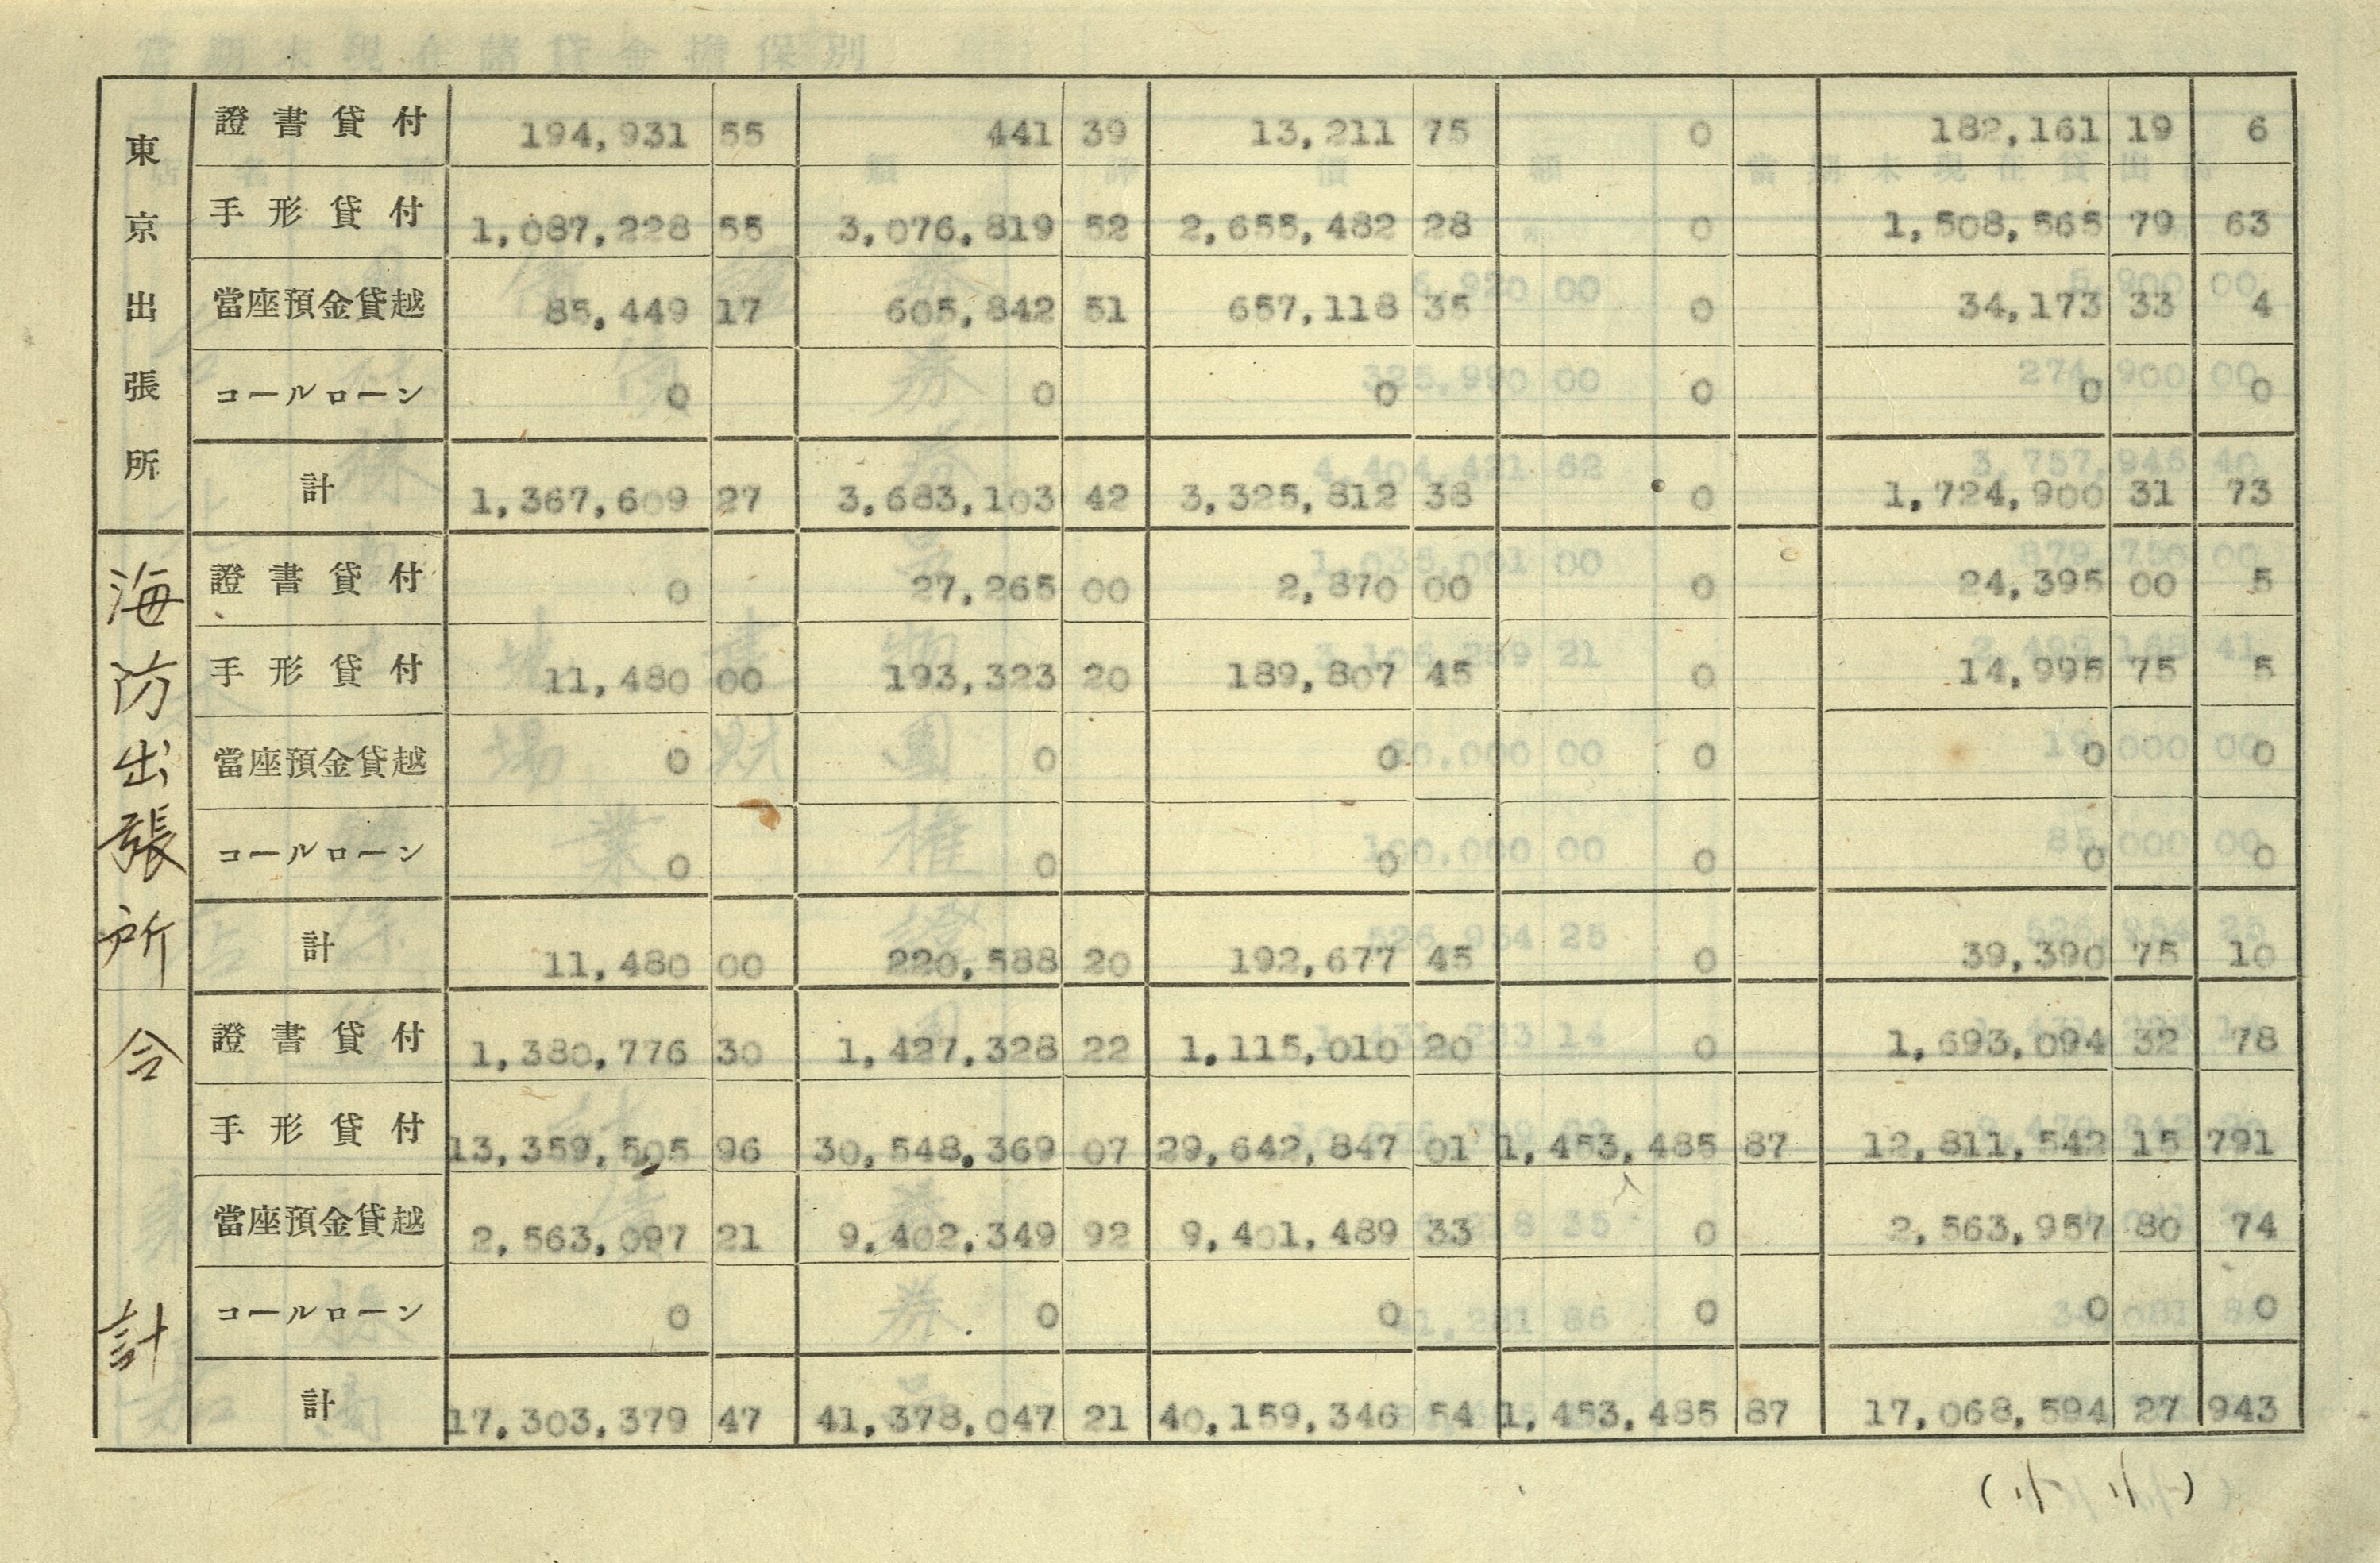 東京出張所
證書貸付 194,931 55 441 39 13,211 75 0 182,161 19 6
手形貸付 1,087,228 55 3,076,819 52 2,655,482 28 0 1,508,565 79 63
當座預金貸越 85,449 17 605,842 51 657,118 35 0 34,173 33 4
コールローン 0 0 0 0 0 0
計 1,367,609 27 3,683,103 42 3,325,812 38 0 1,724,900 31 73
海防出張所
證書貸付 0 27,265 00 2,870 00 0 24,395 00 5
手形貸付 11,480 00 193,323 20 189,807 45 0 14,995 75 5
當座預金貸越 0 0 0 0 0 0
コールローン 0 0 0 0 0 0
計 11,480 00 220,588 20 192,677 45 0 39,390 75 10
合計
證書貸付 1,380,776 30 1,427,328 22 1,115,010 20 0 1,693,094 32 78
手形貸付 13,359,505 96 30,548,369 07 29,642,847 01 1,453,485 87 12,811,542 15 791
當座預金貸越 2,563,097 21 9,402,349 92 9,401,489 33 0 2,563,957 80 74
コールローン 0 0 0 0 0 0
計 17,303,379 47 41,378,047 21 40,159,346 54 1,453,485 87 17,068,594 27 943